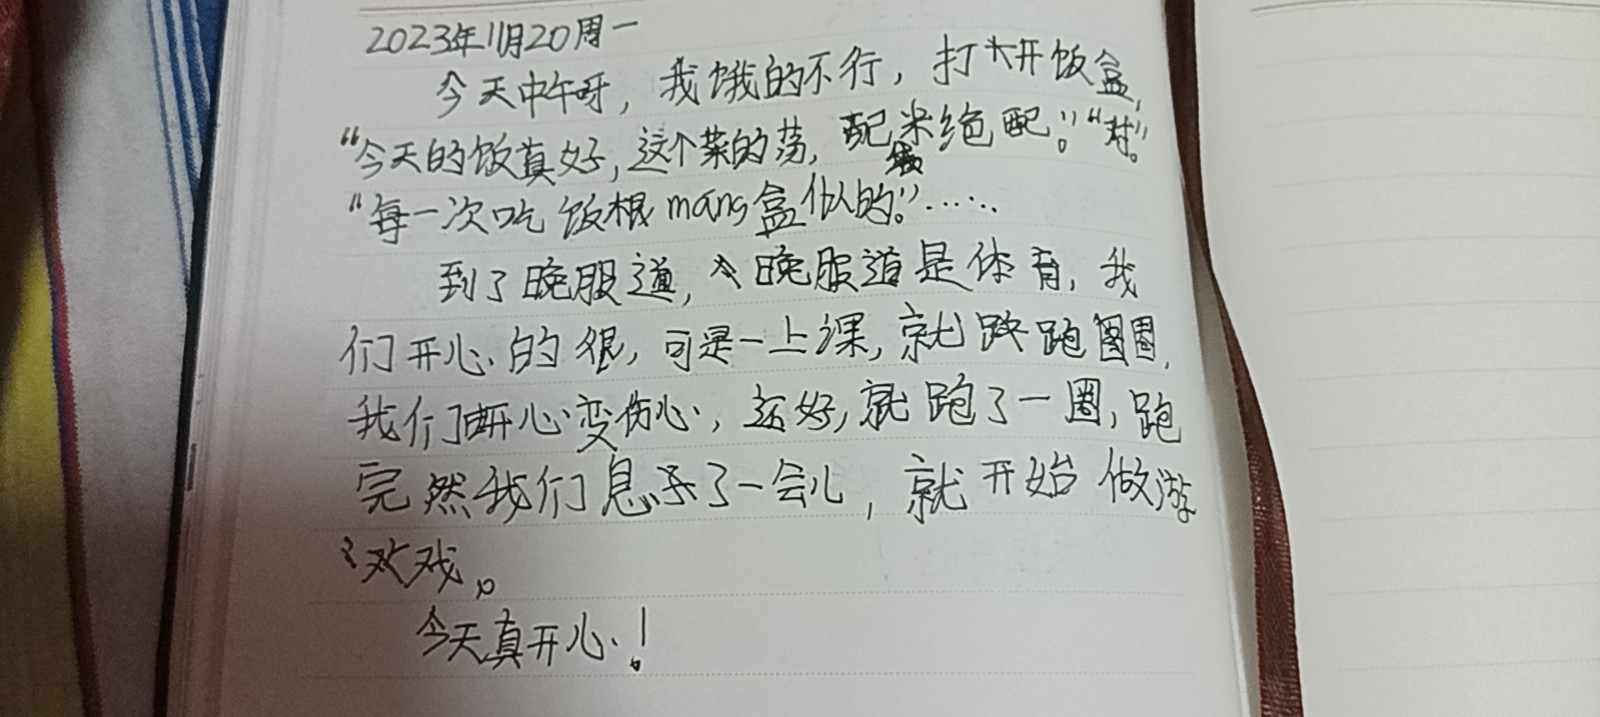 2023年11月20周一
今天中午呀，我饿的不行，打开饭盒，
“今天的饭真好，这个菜的荡，配米饭绝配。”“对”。
“每一次吃饭根mang盒似的。”……
到了晚服道，晚服道是体育，我
们开心的很，可是一上课，就跑圈圈，
我们开心变伤心，还好，就跑了一圈，跑
完然我们息了一会儿，就开始做游
戏。
今天真开心！